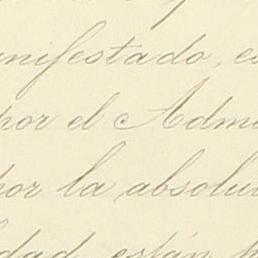 manifestado, e
por el Adm
por la absolu
dad están